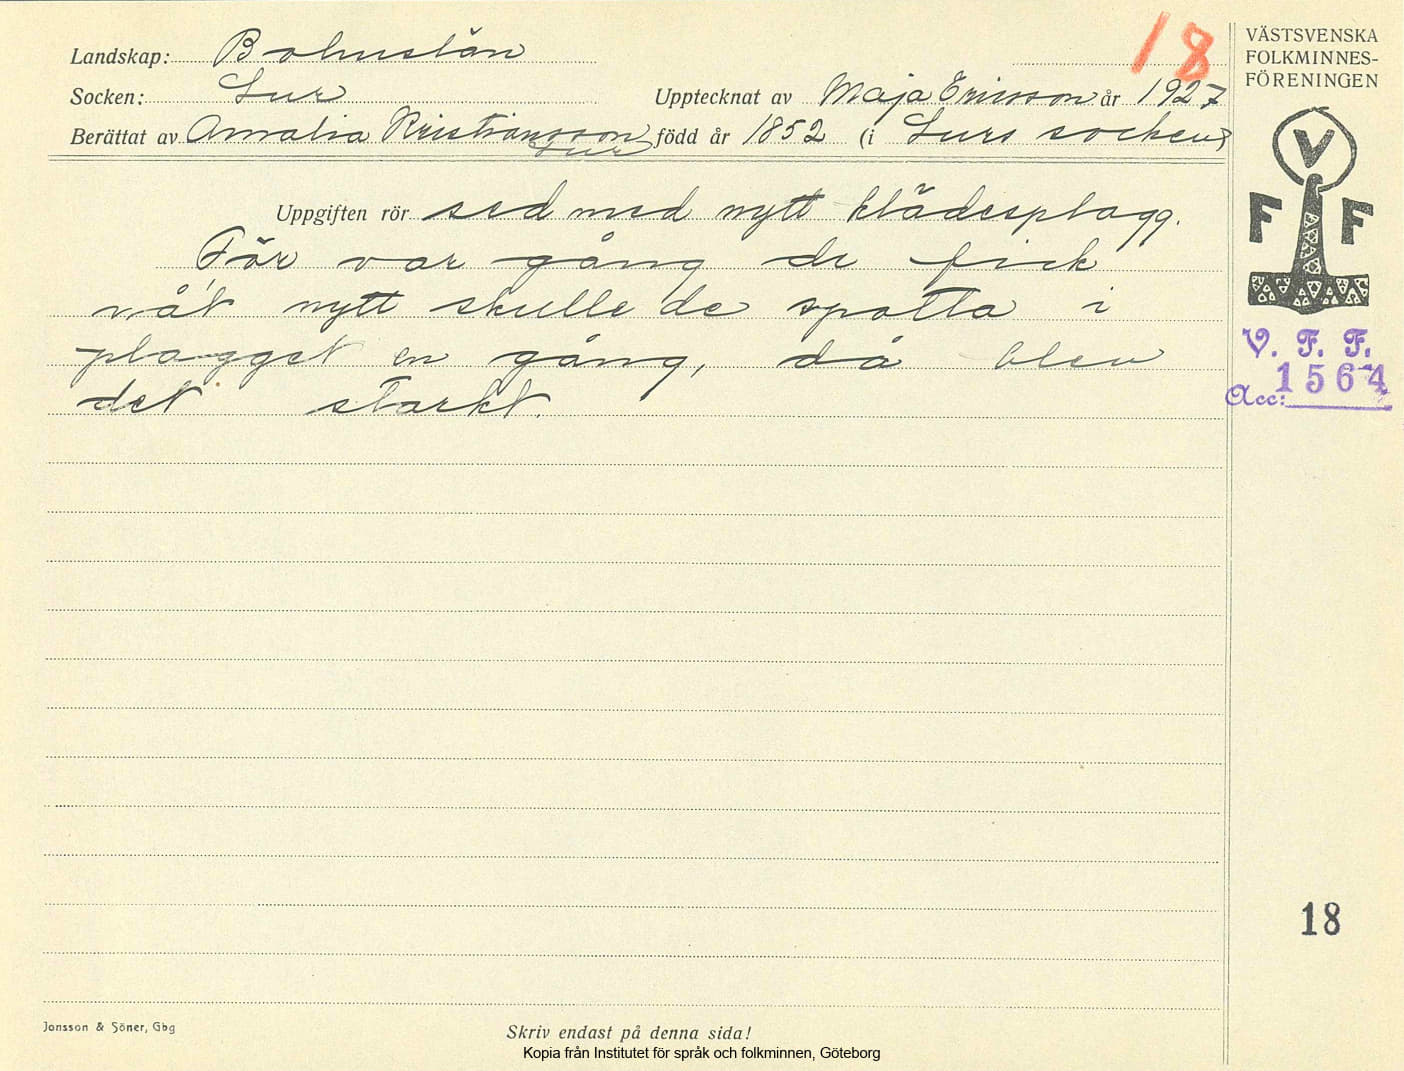 18
VÄSTSVENSKA
FOLKMINNES-
FÖRENINGEN
Landskap: Bohuslän
Socken: Lur
Upptecknat av Maja Ericsson år 1927
Berättat av Amalia Kristiansson född år 1852 (i Lurs socken)
Lur
V
F F
Uppgiften rör sed med nytt klädesplagg.
För var gång de fick
nåt nytt skulle de spotta i
plagget en gång, då blev
det starkt.
V. F. F.
1564
Acc:
18
Jonsson & Söner, Gbg
Skriv endast på denna sida!
Kopia från Institutet för språk och folkminnen, Göteborg